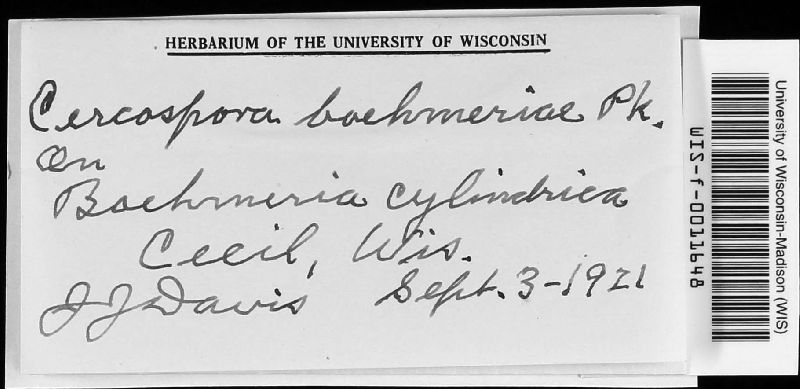 HERBARIUM OF THE UNIVERSITY OF WISCONSIN
Cercospora boehmeriae Pk.
on
Boehmeria cylindrica
Cecil, Wis.
J J Davis Sept. 3-1921
University of Wisconsin-Madison (WIS)
WIS-f-0011648